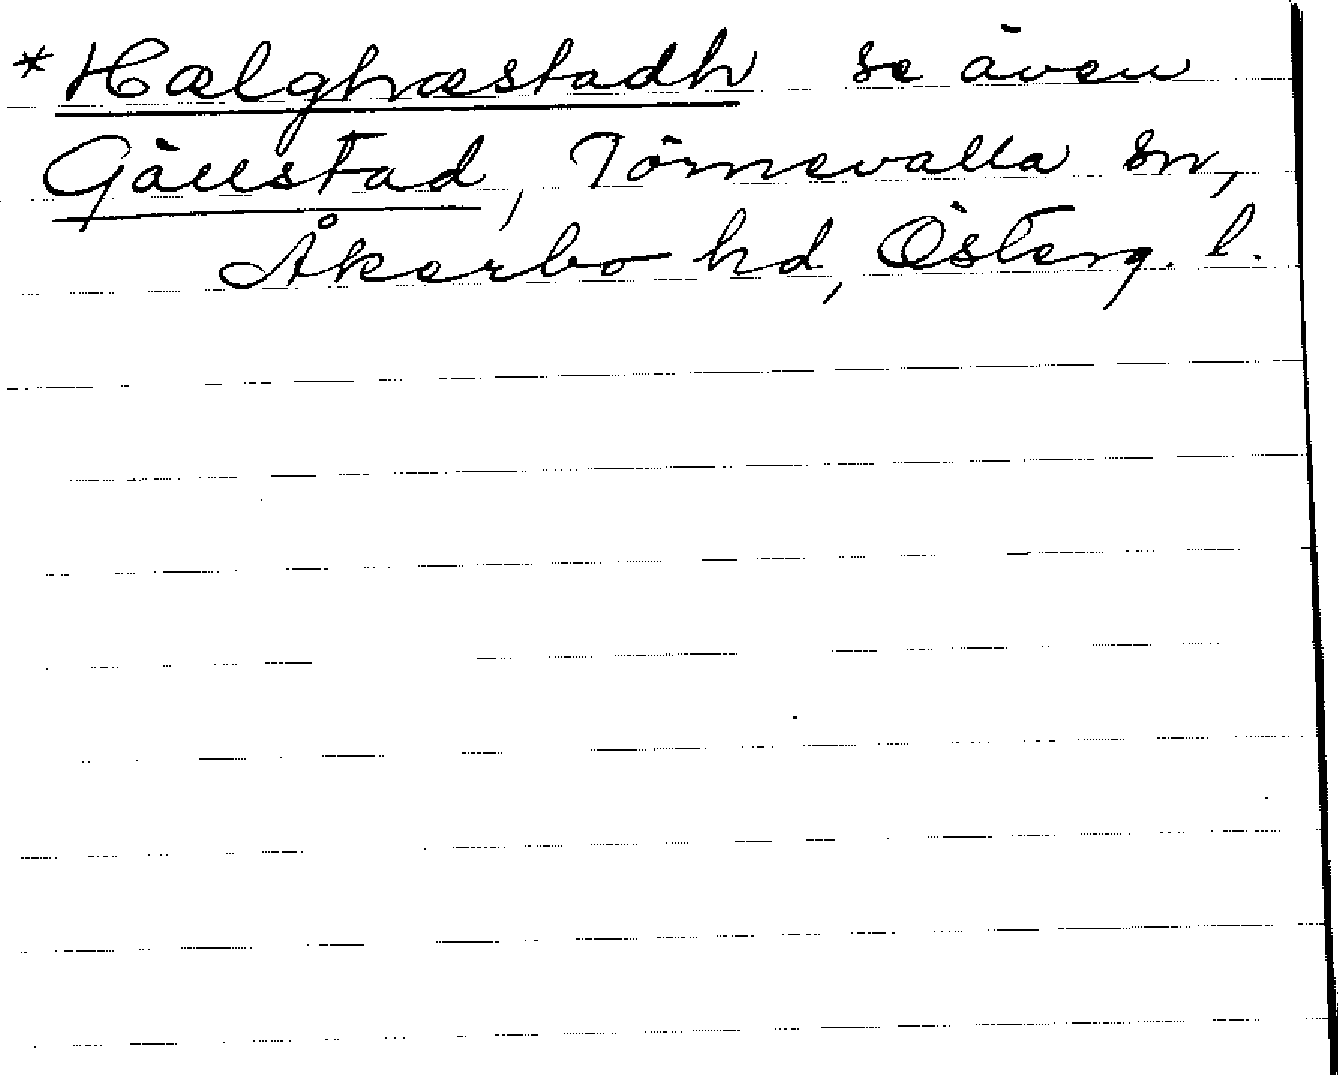 *Hælghæstadh se även
Gällstad, Törnevalla sn,
Åkerbo hd, Österg. l.